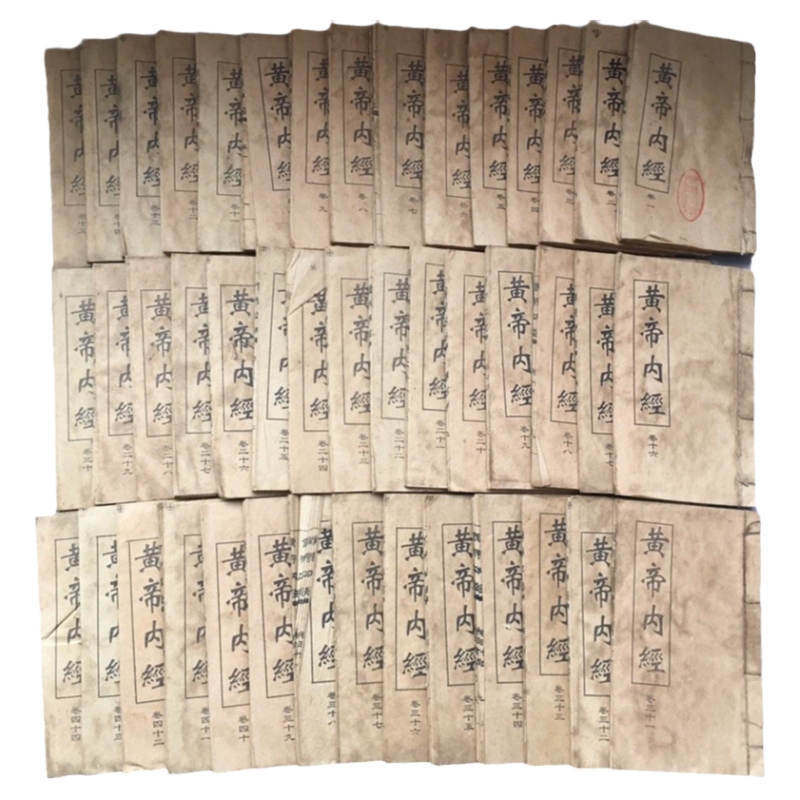 黄帝内經
卷一
黄帝内經
卷二
黄帝内經
卷三
黄帝内經
卷四
黄帝内經
卷五
黄帝内經
卷六
黄帝内經
卷七
黄帝内經
卷八
黄帝内經
卷九
黄帝内經
黄帝内經
卷十一
黄帝内經
卷十二
黄帝内經
卷十三
黄帝内經
卷十四
黄帝内經
黄帝内經
卷十六
黄帝内經
卷十七
黄帝内經
卷十八
黄帝内經
卷十九
黄帝内經
卷二十
黄帝内經
卷二十一
黄帝内經
卷二十二
黄帝内經
卷二十三
黄帝内經
卷二十四
黄帝内經
卷二十五
黄帝内經
卷二十六
黄帝内經
卷二十七
黄帝内經
卷二十八
黄帝内經
卷二十九
黄帝内經
卷三十
黄帝内經
卷三十一
黄帝内經
卷三十二
黄帝内經
卷三十三
黄帝内經
卷三十四
黄帝内經
卷三十五
黄帝内經
卷三十六
黄帝内經
卷三十七
黄帝内經
卷三十八
黄帝内經
卷三十九
黄帝内經
卷四十
黄帝内經
卷四十一
黄帝内經
卷四十二
黄帝内經
卷四十三
黄帝内經
卷四十四